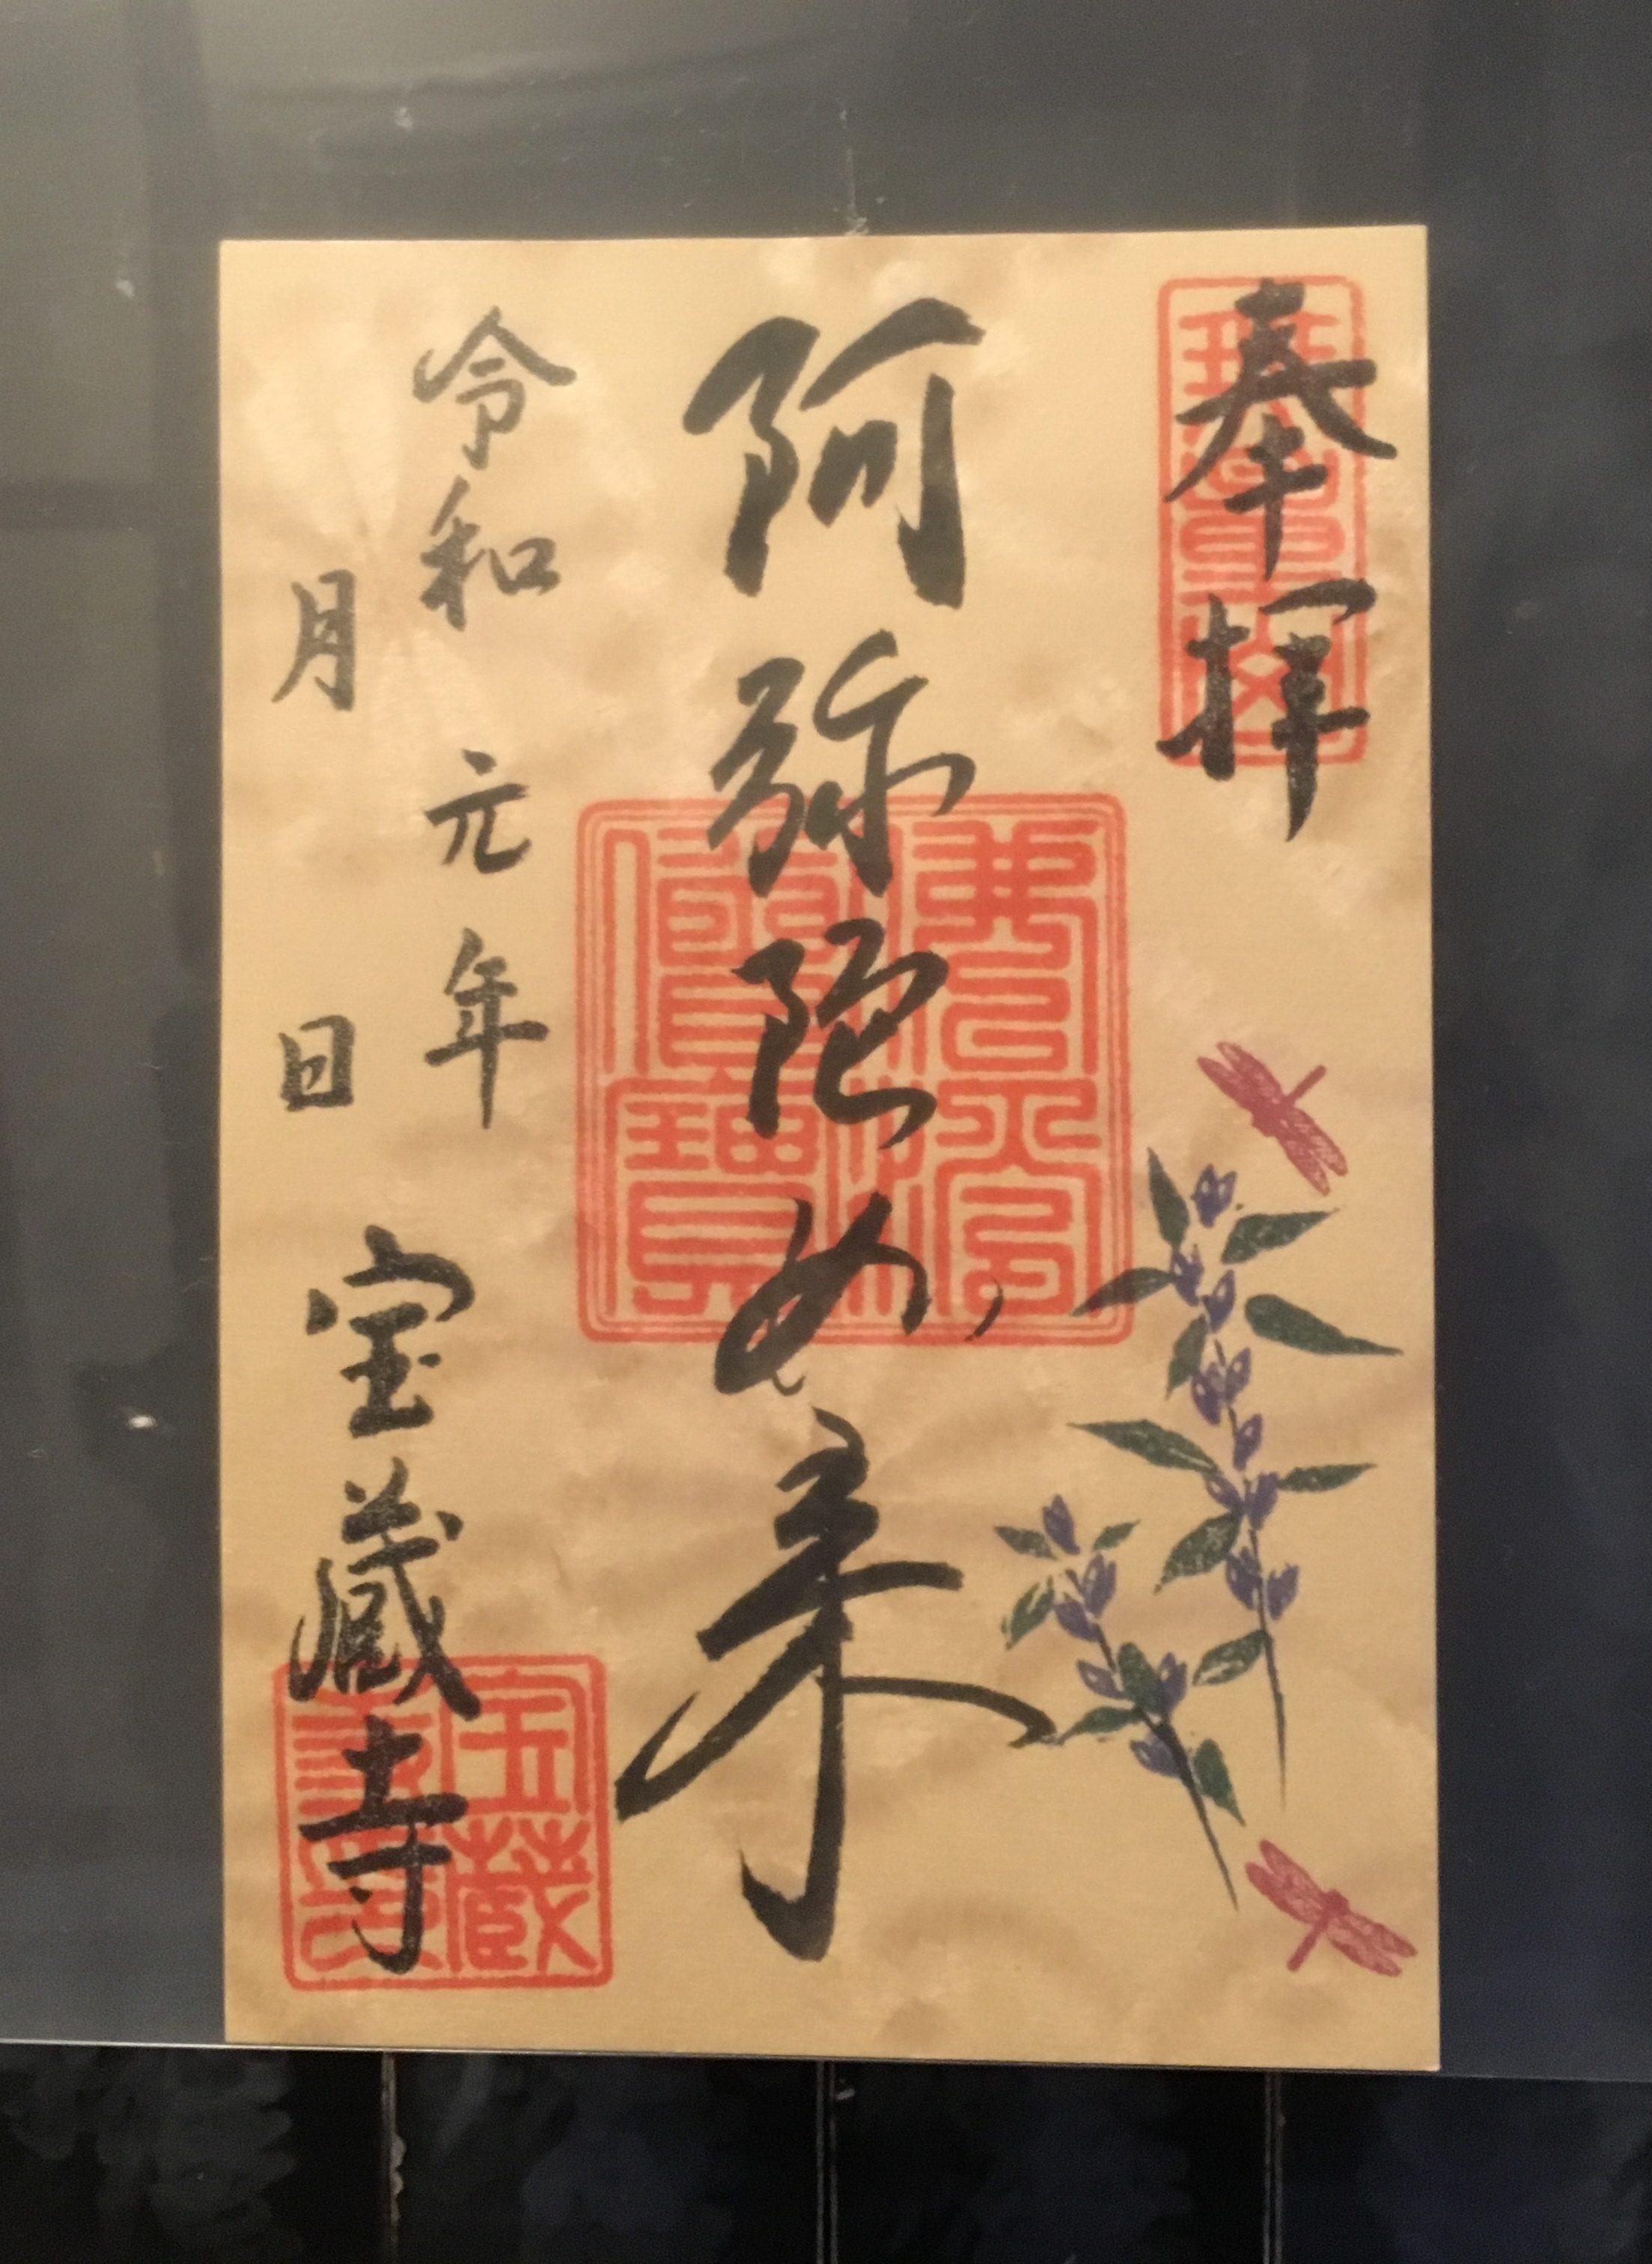 奉拝
阿弥陀如来
令和元年
月日
宝蔵寺